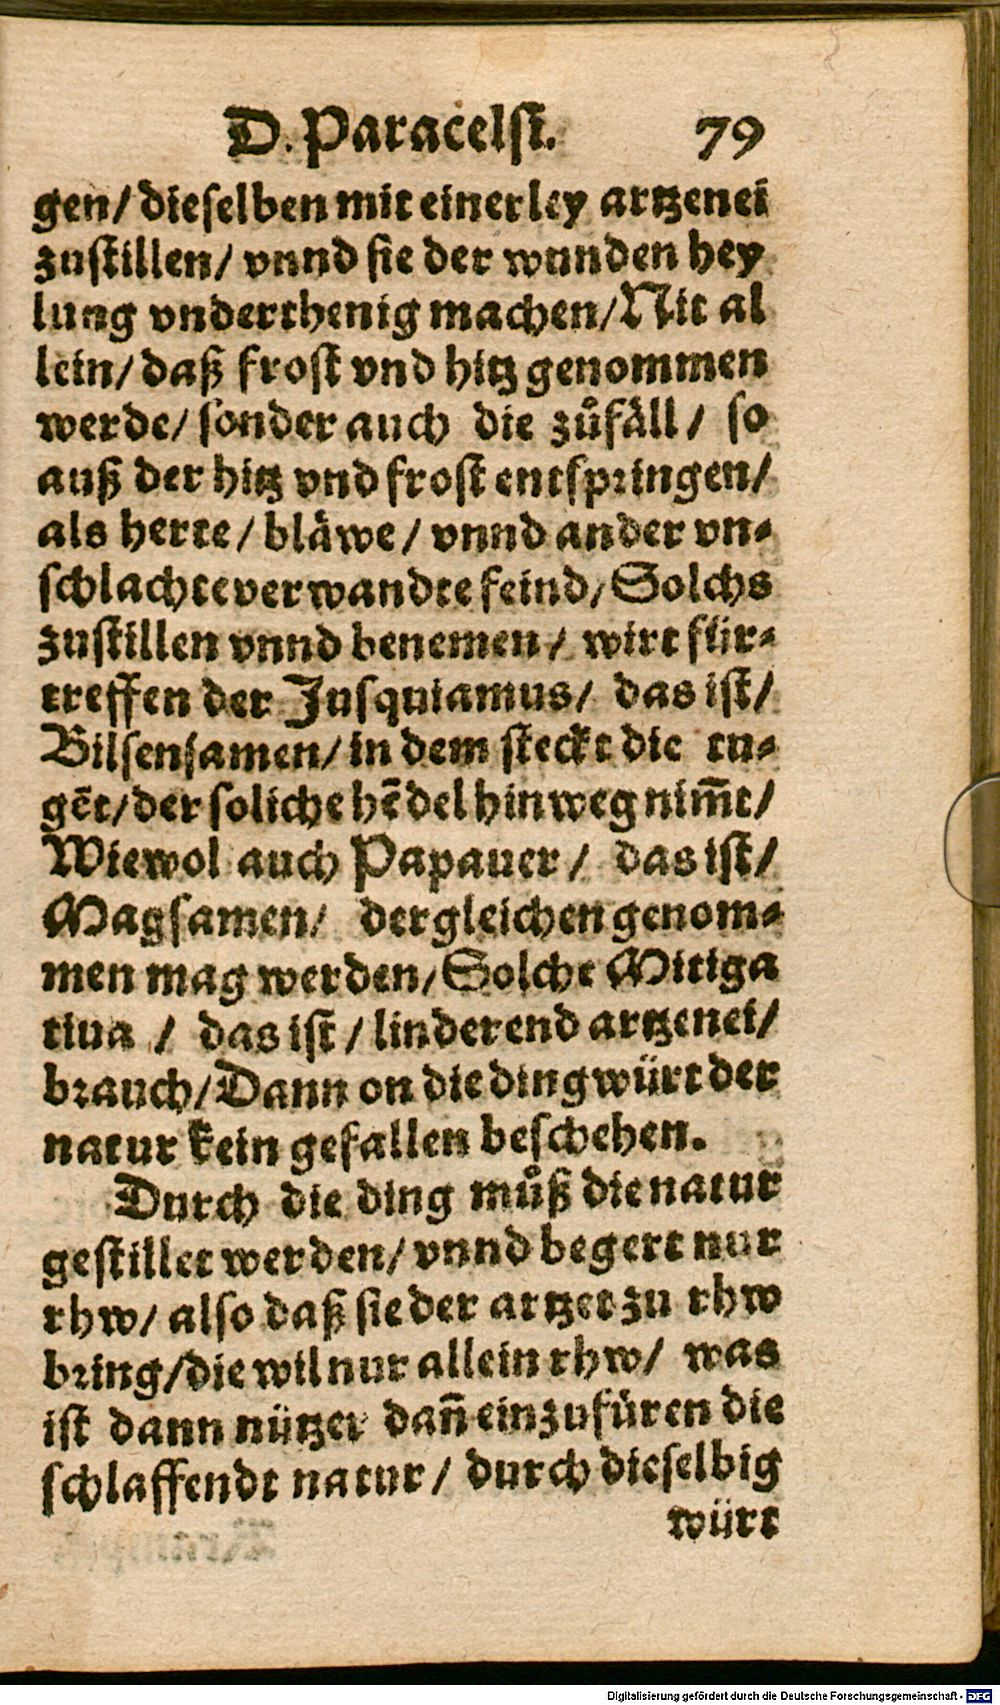 D. Paracelsi. 79
gen/ dieselben mit einerley artzenei
zustillen/ vnnd sie der wunden hey
lung vnderthenig machen/ Nit al
lein/ daß frost vnd hitz genommen
werde/ sonder auch die zůfäll/ so
auß der hitz vnd frost entspringen/
als herte/ bläwe/ vnnd ander vn⸗
schlachte verwandte feind/ Solchs
zustillen vnnd benemen/ wirt für⸗
treffen der Jusquiamus/ das ist/
Bilsensamen/ in dem steckt die tu⸗
gẽt/ der soliche hẽdel hinweg nim̃t/
Wiewol auch Papauer/ das ist/
Magsamen/ dergleichen genom⸗
men mag werden/ Solche Mitiga
tiua / das ist/ linderend artzenei/
brauch/ Dann on die ding würt der
natur kein gefallen beschehen.
Durch die ding můß die natur
gestillet werden/ vnnd begert nur
rhw/ also daß sie der artzet zu rhw
bring/ die wil nur allein rhw/ was
ist dann nützer dañ einzufüren die
schlaffendt natur/ durch dieselbig
würt
Digitalisierung gefördert durch die Deutsche Forschungsgemeinschaft - DFG